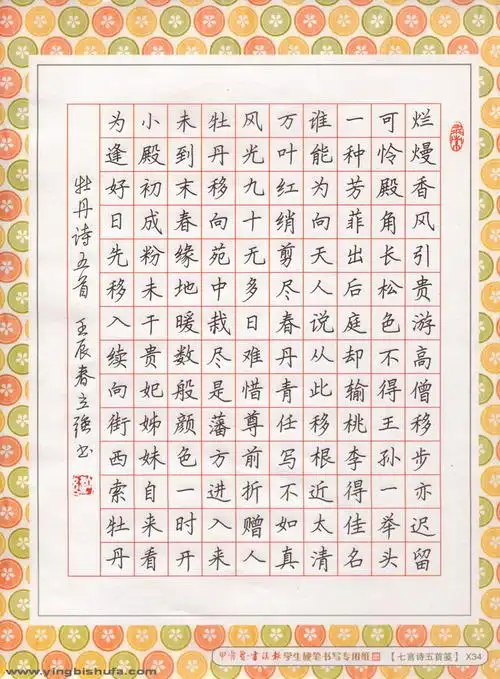 烂熳香风引贵游高僧移步亦迟留
可怜殿角长松色不得王孙一举头
一种芳菲出后庭却输桃李得佳名
谁能为向天人说从此移根近太清
万叶红绡剪尽春丹青任写不如真
风光九十无多日难惜尊前折赠人
牡丹移向苑中栽尽是藩方进入来
未到末春缘地暖数般颜色一时开
小殿初成粉未干贵妃姊妹自来看
为逢好日先移入续向街西索牡丹
牡丹诗五首 壬辰春立强书
书法报 学生硬笔书写专用纸 【七言诗五首笺】 X34
www.yingbishufa.com